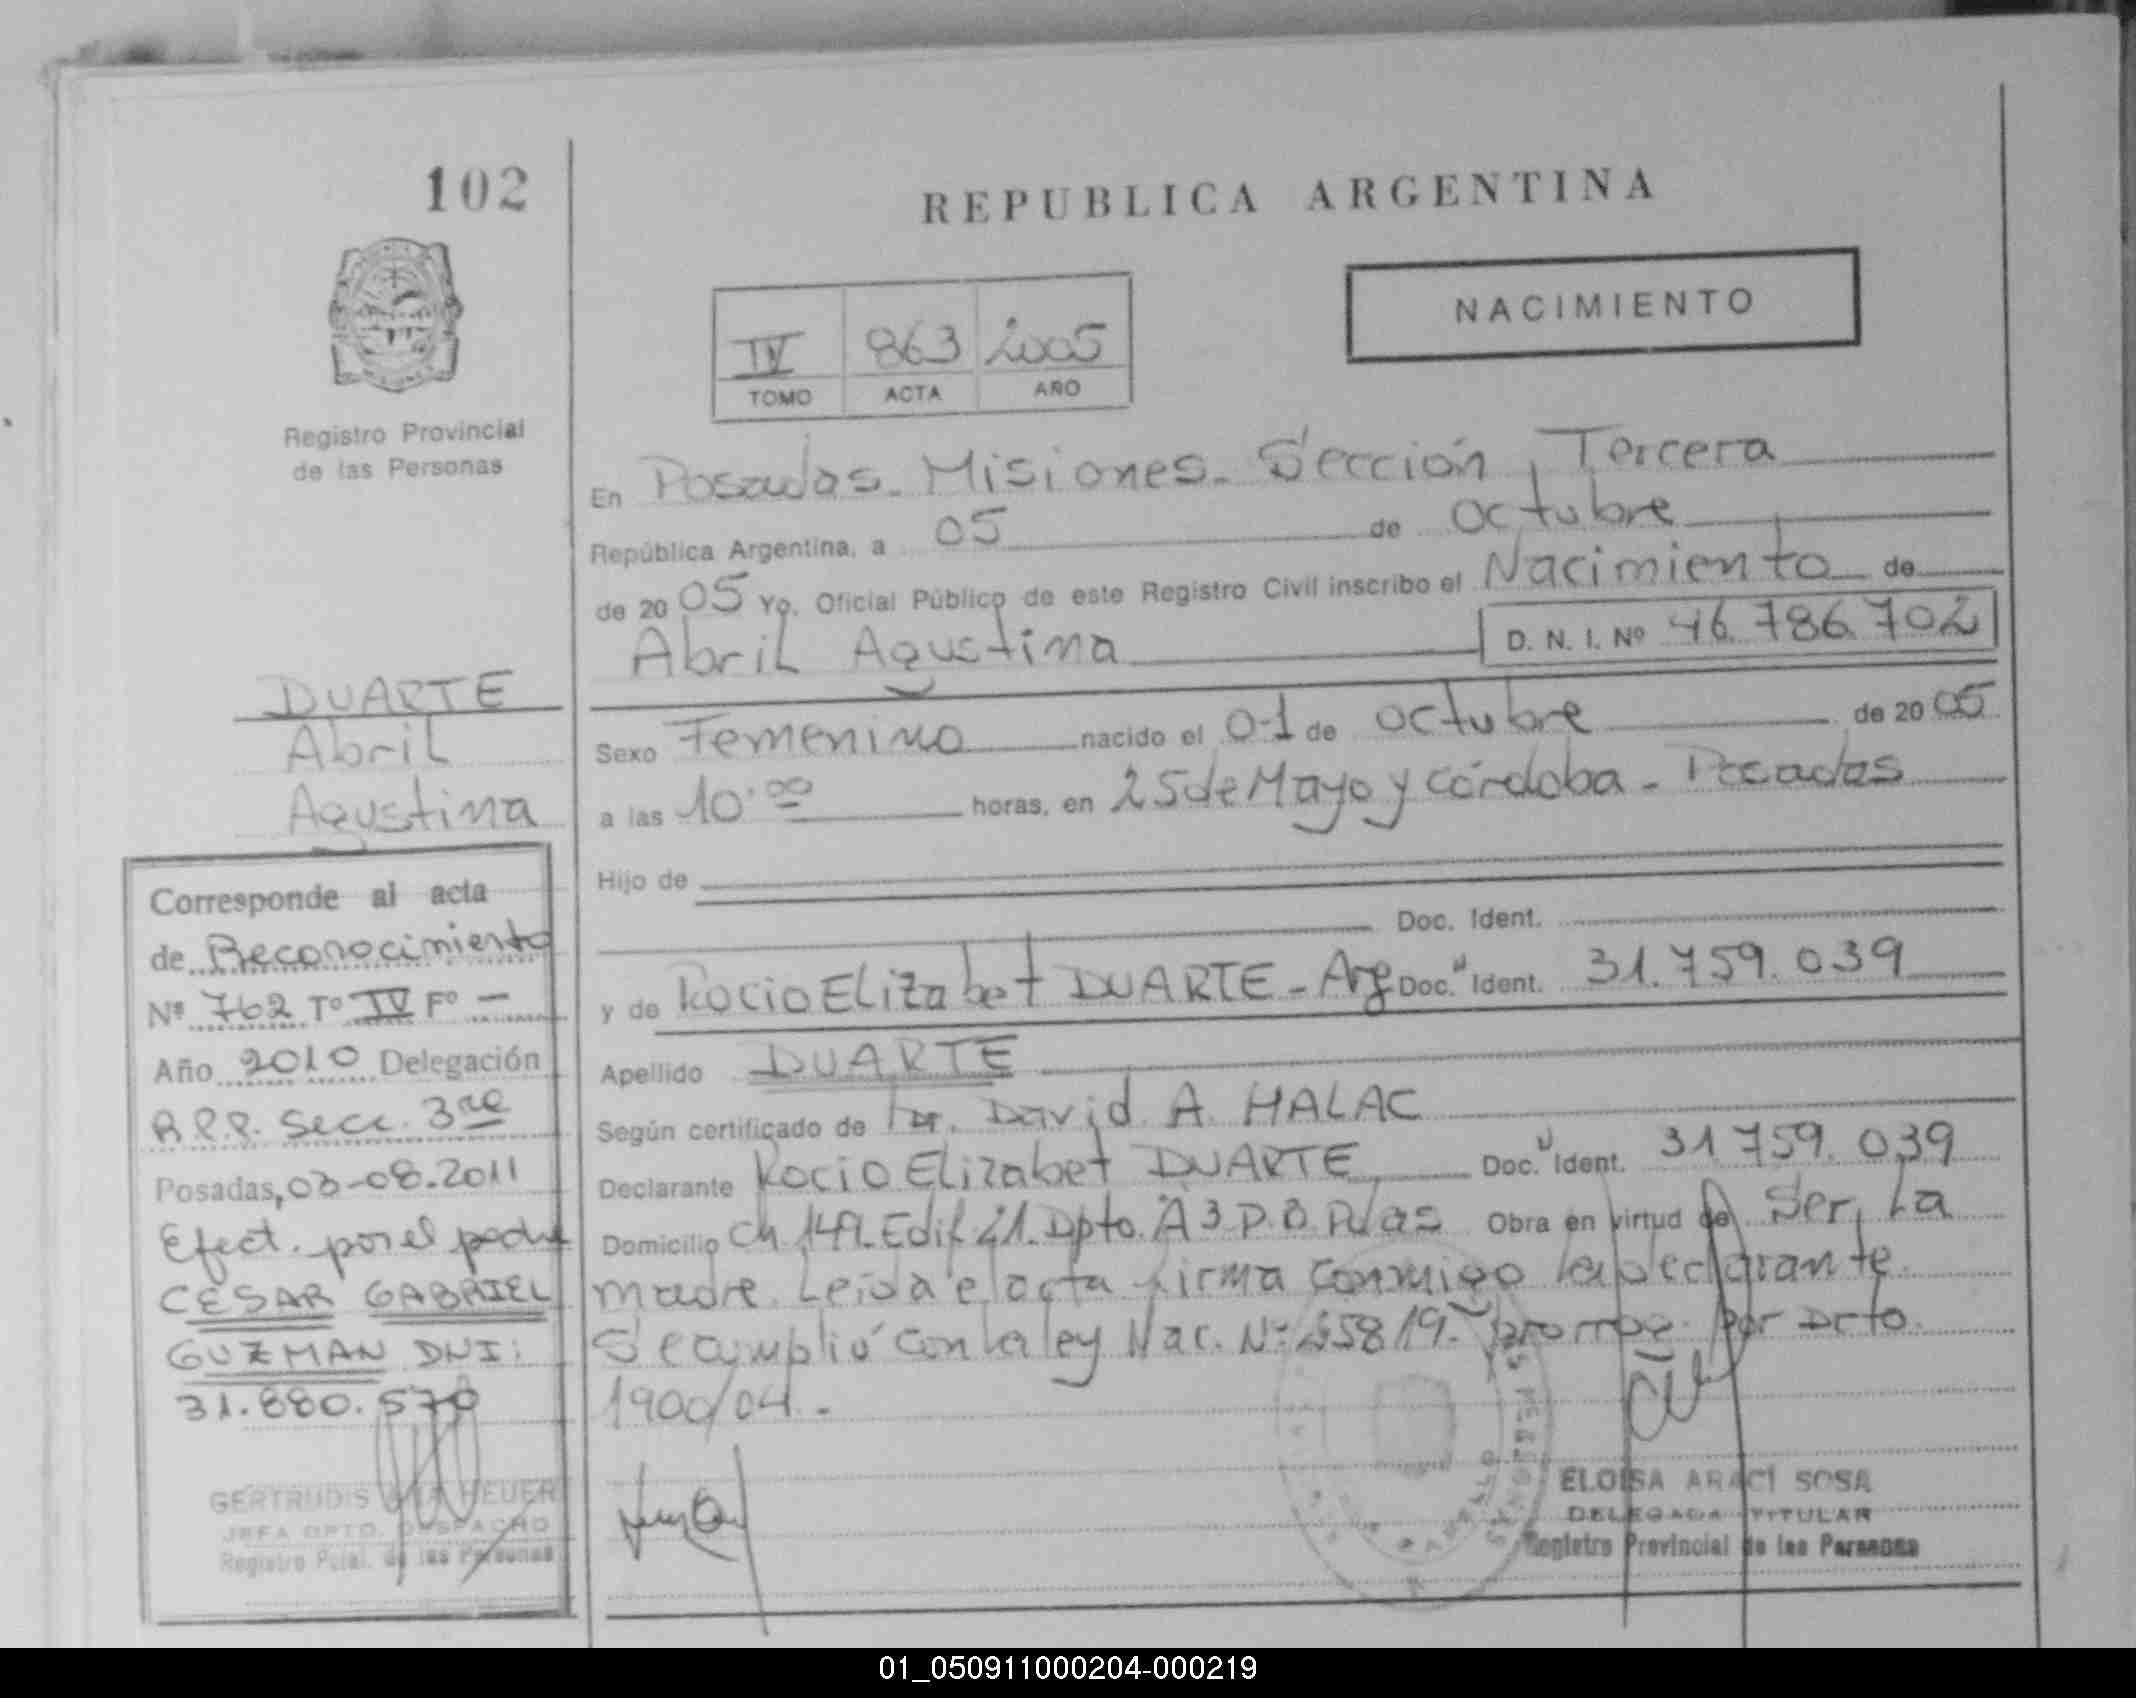 102
REPUBLICA ARGENTINA
NACIMIENTO
IV 863 2005
TOMO ACTA AÑO
Registro Provincial
de las Personas
En Posadas - Misiones - Sección Tercera
República Argentina, a 05 de Octubre
de 2005 Yo, Oficial Público de este Registro Civil inscribo el Nacimiento de
Abril Agustina D. N. I. Nº 46.786.702
Sexo Femenino nacido el 01 de Octubre de 2005
a las 10:00 horas, en 25 de Mayo y Córdoba - Posadas
Hijo de
Doc. Ident.
y de Rocio Elizabet DUARTE - Arg Doc. Ident. 31.759.039
Apellido DUARTE
Según certificado de Dr. David A. HALAC
Declarante Rocio Elizabet DUARTE Doc. Ident. 31759.039
Domicilio Ch. 149. Edif. 21. Dpto. A3 P.B. Pdas Obra en virtud de Ser La
madre. Leida el acta firma conmigo la declarante.
Se cumplió con la ley Nac. Nº 25819.- por Dcto.
1900/04.-
ELOISA ARACÍ SOSA
DELEGADA TITULAR
Registro Provincial de las Personas
DUARTE
Abril
Agustina
Corresponde al acta
de Reconocimiento
Nº 762 Tº IV Fº -
Año 2010 Delegación
R.P.P. Secc. 3ra
Posadas, 03-08.2011
Efect. por el padre
CESAR GABRIEL
GUZMAN DNI:
31.880.570
GERTRUDIS HEUER
JEFA DPTO. DESPACHO
Registro Pcial. de las Personas
01_050911000204-000219